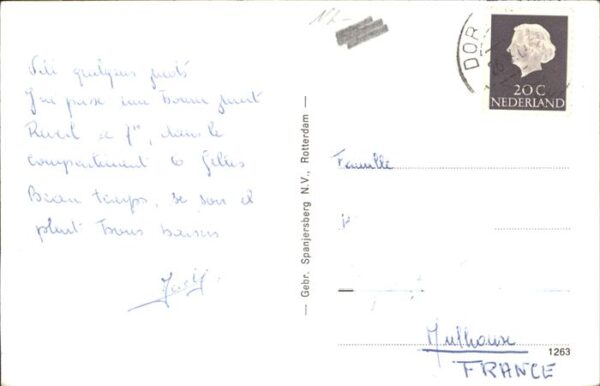 quelques mots
J'ai passé une bonne nuit
Reveil a 7h, dans le
compartiment 6 filles
Beau temps, ce soir il
pleut bons baisers
Gebr. Spanjersberg N.V., Rotterdam
DOR
20 C
NEDERLAND
Famille
Mulhouse
1263
FRANCE